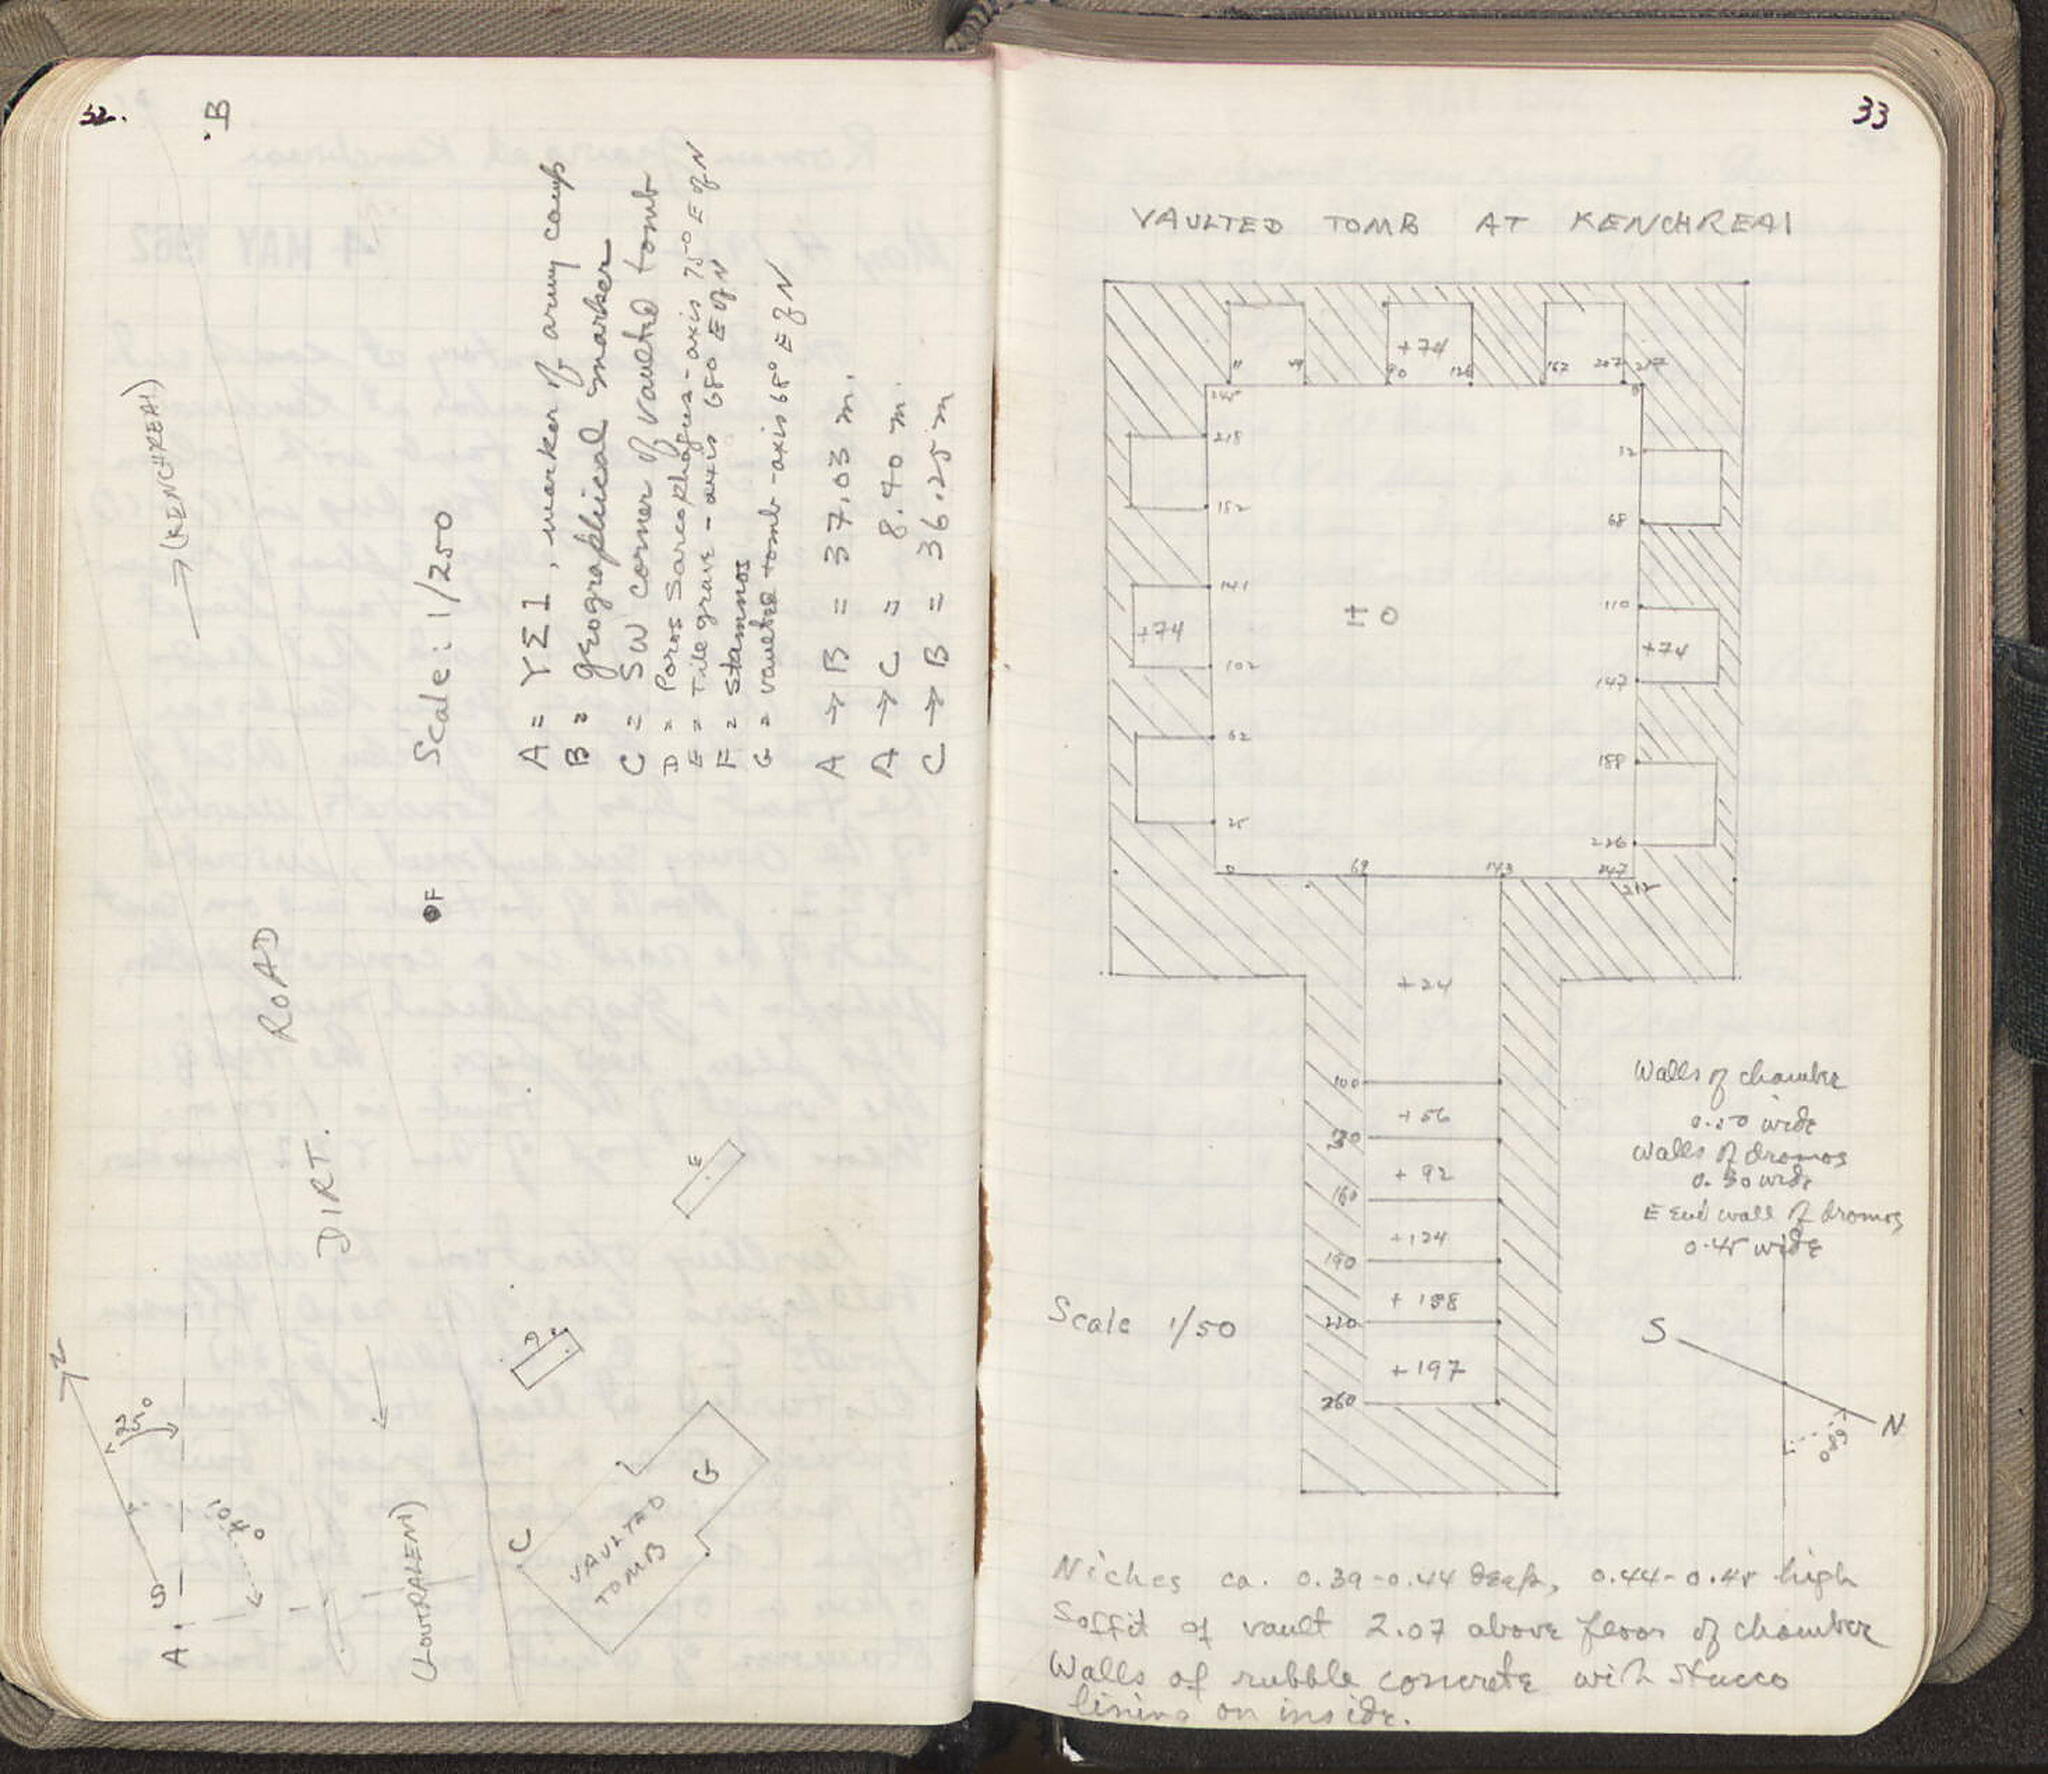 32.
B
→ (KENCHREAI)
Scale: 1/250
A = ΥΣ1, marker of army camp
B = geographical marker
C = SW corner of vaulted tomb
D = Poros Sarcophagus - axis 75° E of N
E = Tile grave - axis 68° E of N
F = Stamnos
G = vaulted tomb - axis 68° E of N
A → B = 37.03 m.
A → C = 8.40 m.
C → B = 36.25 m
F
ROAD
DIRT.
E
D
N
S
A
(LOUTRALENI)
C
G
VAULTED
TOMB
33
VAULTED TOMB AT KENCHREAI
+74
11 49 90 126 162 207 217
245 0
218 32
152 68
141 110
+74 ± 0 +74
102 147
62 188
25 226
0 69 143 247
212
+24
100
+56
130
+92
160
+124
190
+158
220
+197
260
Walls of chamber
0.50 wide
Walls of dromos
0.30 wide
E end wall of dromos
0.45 wide
Scale 1/50
S
N
68°
Niches ca. 0.39-0.44 deep, 0.44-0.45 high
Soffit of vault 2.07 above floor of chamber
Walls of rubble concrete with stucco
lining on inside.